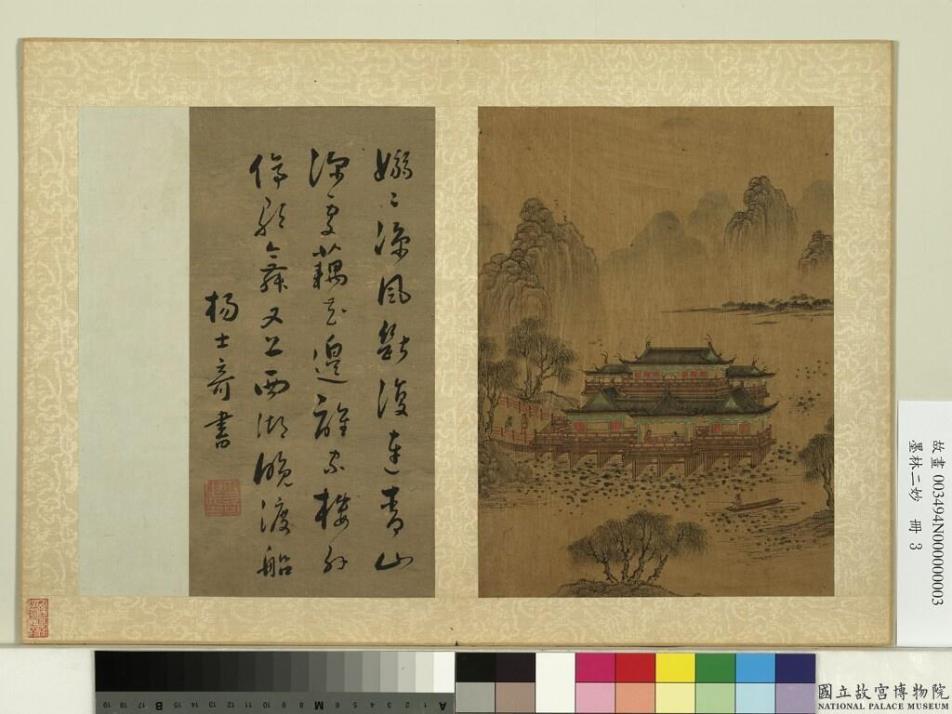 嫋〻涼風斷復連青山
深處藕花邊誰家樓外
停歌舞又上西湖晚渡船
楊士奇書
故畫 003494N000000003
墨林二妙 冊 3
國立故宮博物院
NATIONAL PALACE MUSEUM